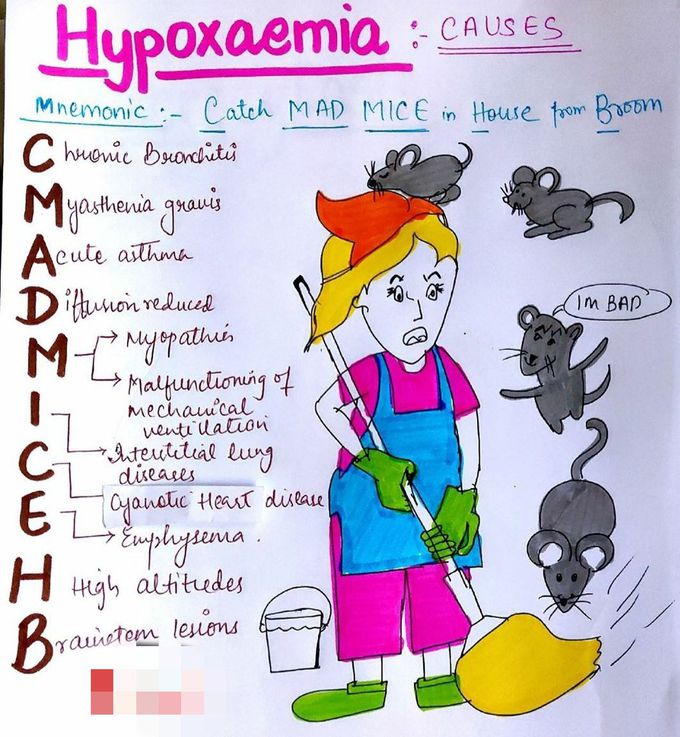 Hypoxaemia :- CAUSES
Mnemonic :- Catch MAD MICE in House from Broom
Chronic Bronchitis
Myasthenia gravis
Acute asthma
Diffusion reduced
M
Myopathies
Malfunctioning of
mechanical
ventillation
I
Interstitial lung
diseases
C
Cyanotic Heart disease
E
Emphysema.
High altitudes
Brainstem lesions
IM BAD